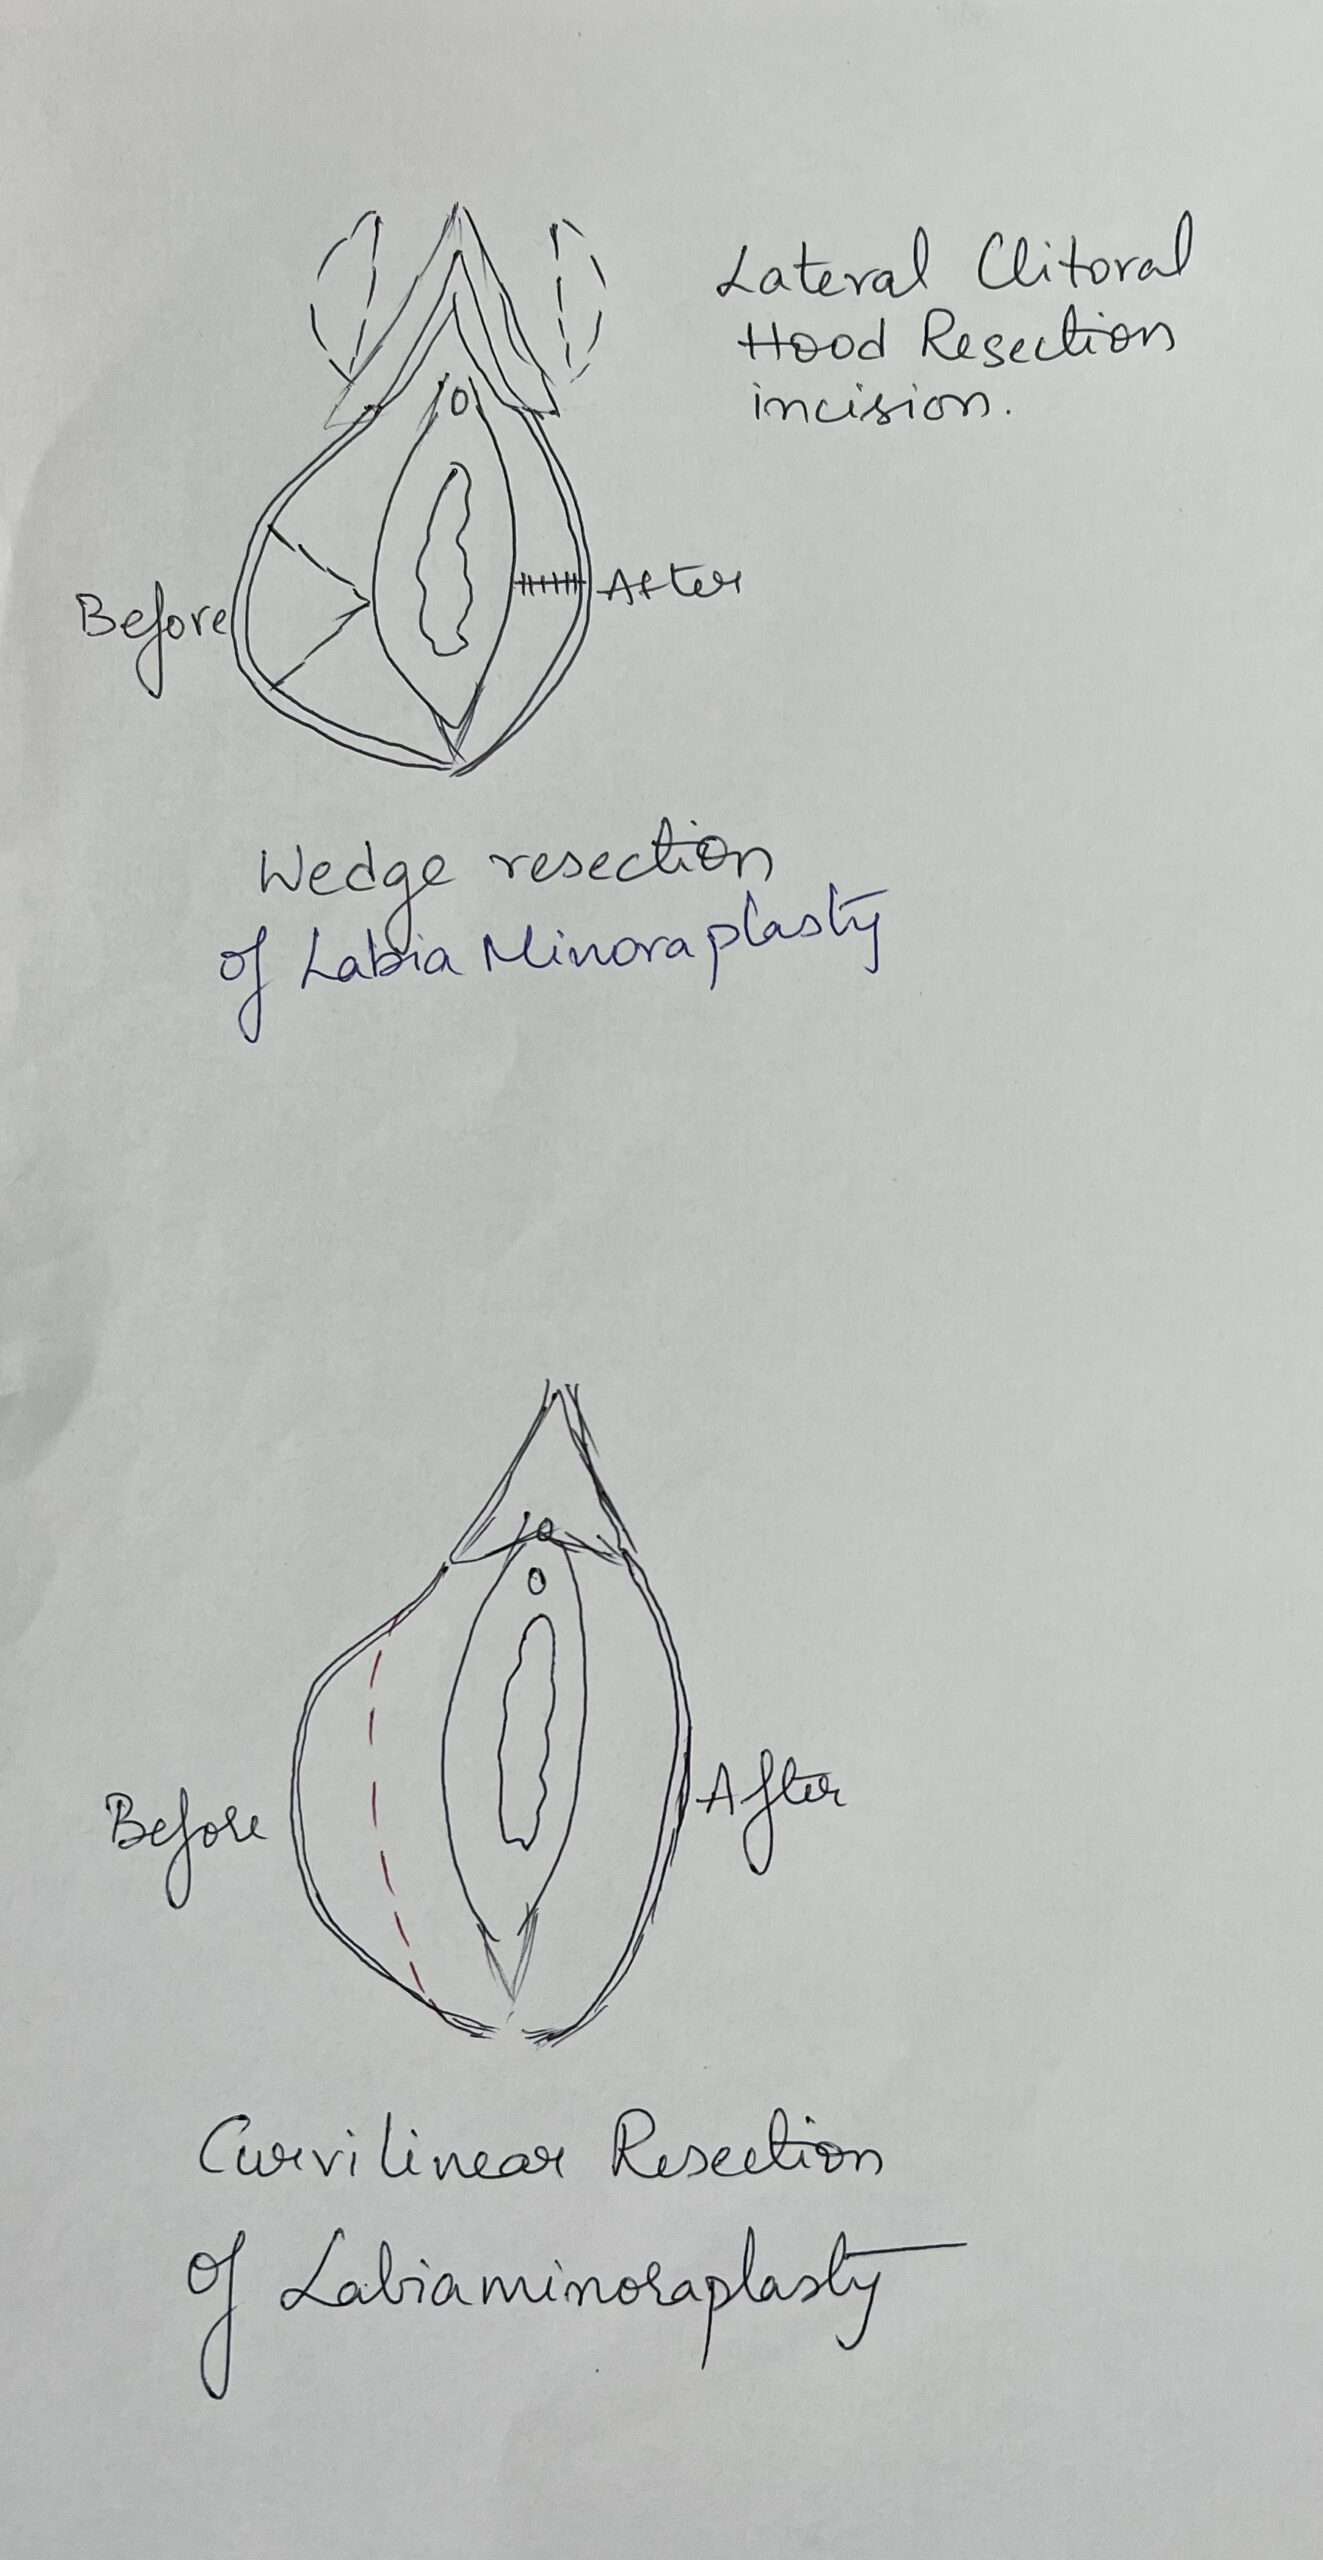 Lateral Clitoral
Hood Resection
incision.
Before
After
Wedge resection
of Labia Minoraplasty
Before
After
Curvilinear Resection
of Labiaminoraplasty